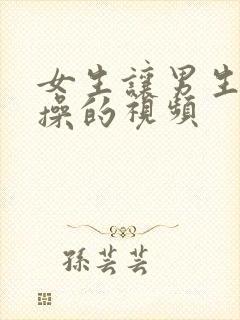 女生讓男生
操的視頻
孫芸芸